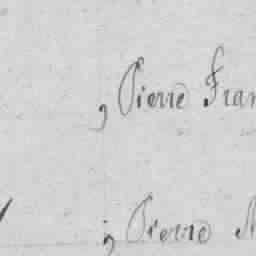 , Pierre Fran
, Pierre